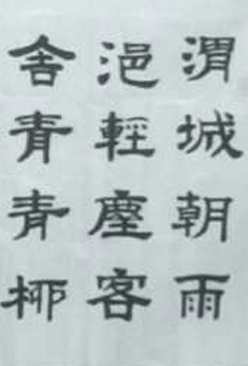 渭城朝雨
浥輕塵客
舍青青柳